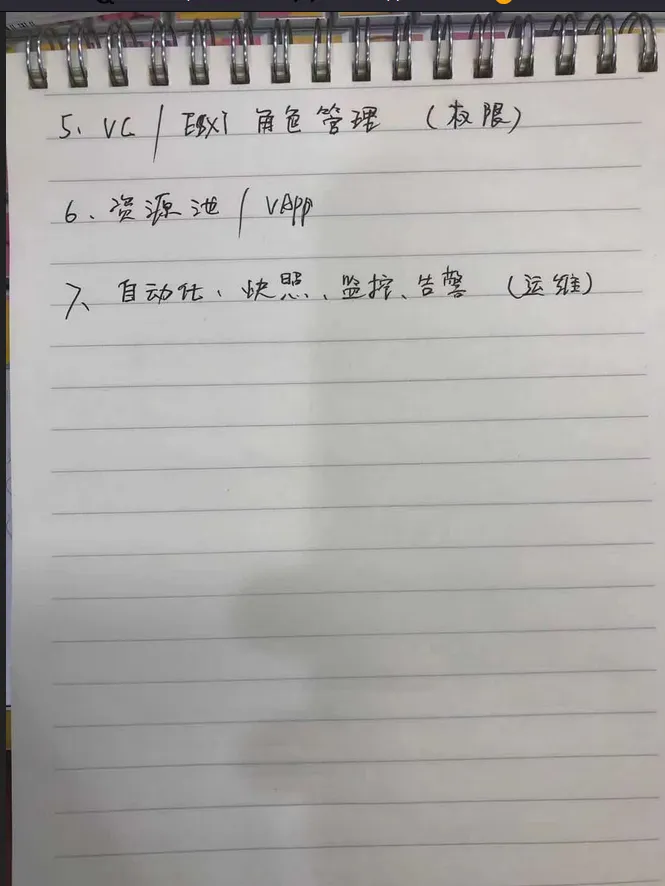 5. VC / ESXI 角色管理 (权限)
6. 资源池 / VApp
7、自动化、快照、监控、告警 (运维)